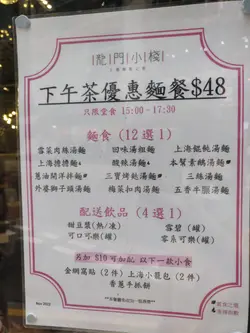 龍門小棧
下午茶優惠麵餐$48
只限堂食 15:00-17:30
麵食 (12選1)
雪菜肉絲湯麵 回味湯粗麵 上海餛飩湯麵
上海擔擔麵 酸辣湯麵 本質素鵝湯麵
蔥油開洋拌麵 三寶烤麩湯麵 三絲湯麵
外婆獅子頭湯麵 梅菜扣肉湯麵 五香牛腩湯麵
配送飲品 (4選1)
甜豆漿(熱/凍) 雪碧(罐)
可口可樂(罐) 零系可樂(罐)
另加 $10 可加配 以下一款小食
金網窩貼 (2件) 上海小籠包 (2件)
香蔥手抓餅